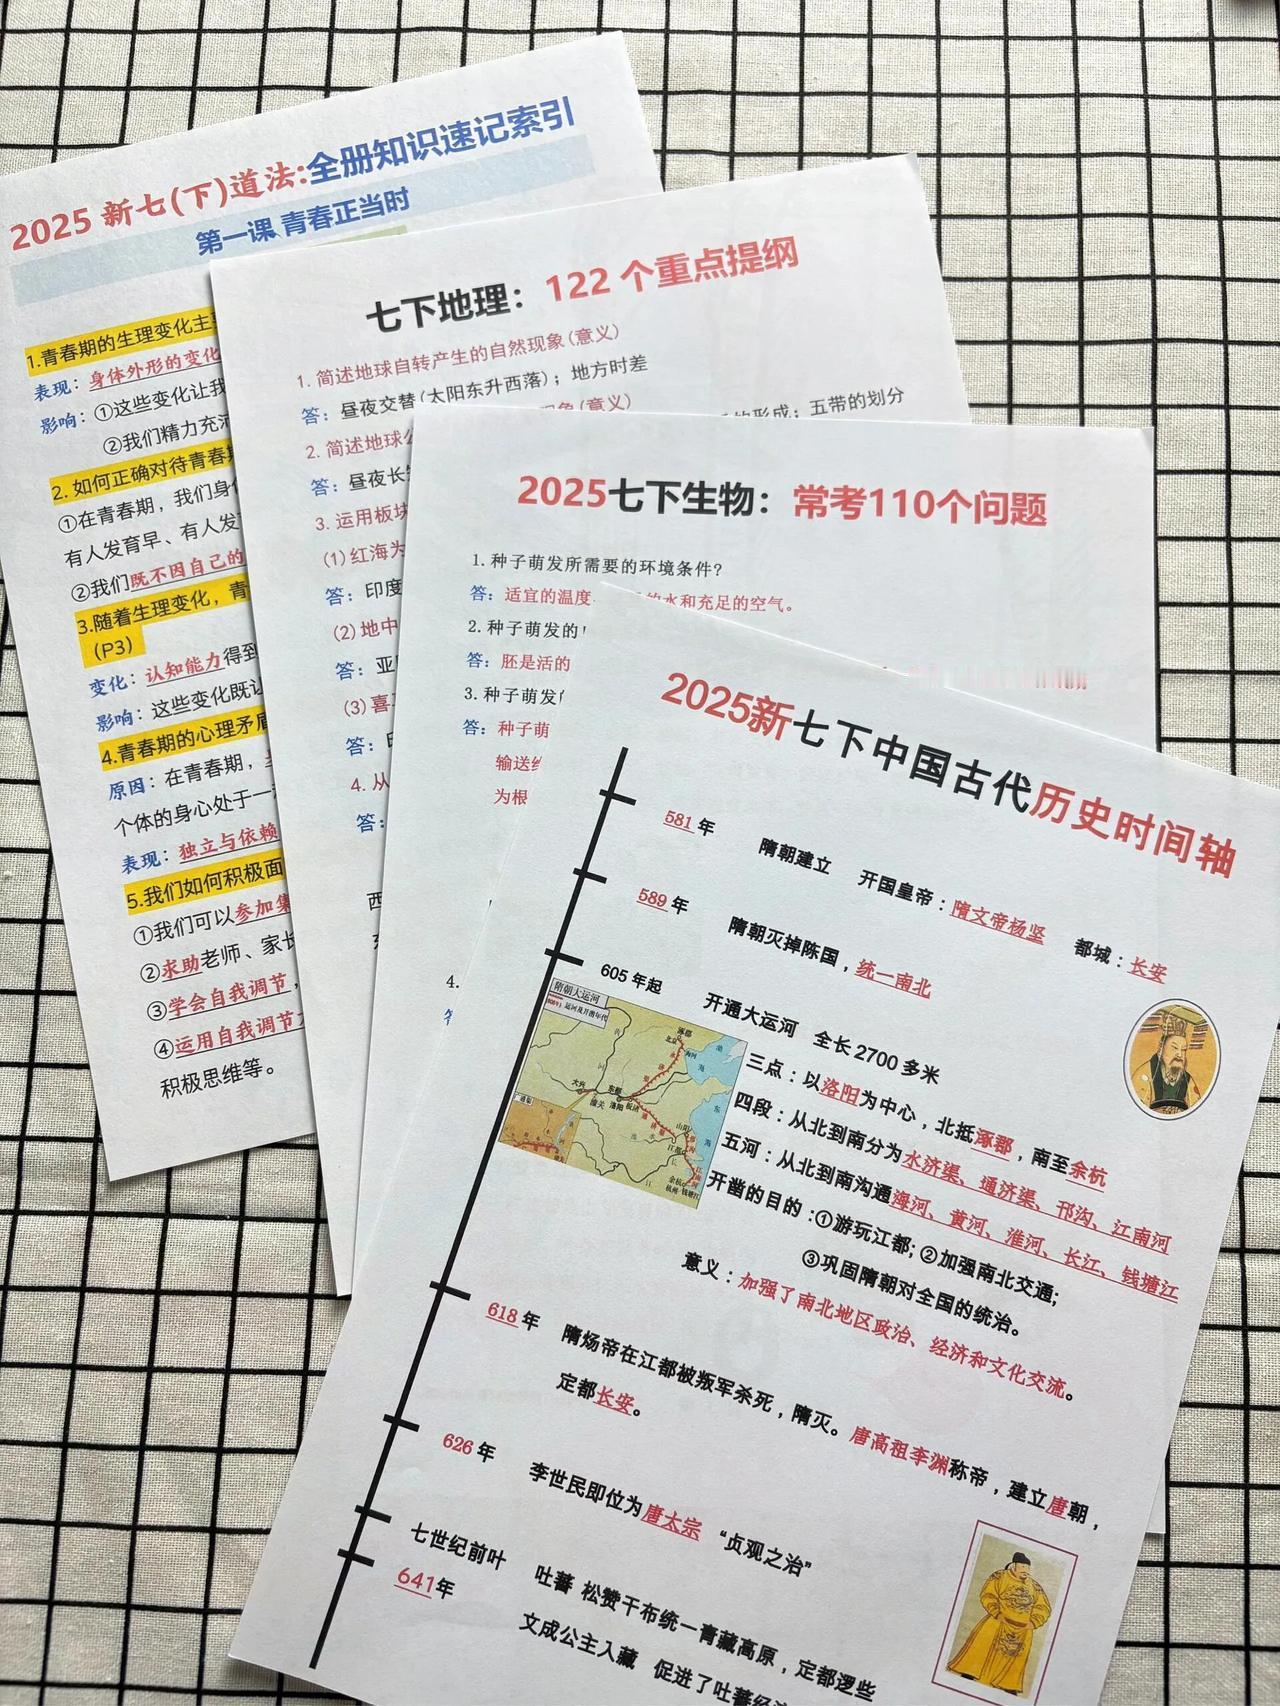 2025 新七(下)道法:全册知识速记索引
第一课 青春正当时
1.青春期的生理变化主
表现：身体外形的变化
影响：①这些变化让我
②我们精力充沛
2. 如何正确对待青春期
①在青春期，我们身
有人发育早、有人发
②我们既不因自己的
3.随着生理变化，青
（P3）
变化：认知能力得到
影响：这些变化既让
4.青春期的心理矛盾
原因：在青春期，
个体的身心处于一
表现：独立与依赖
5.我们如何积极面
①我们可以参加集
②求助老师、家长
③学会自我调节，
④运用自我调节
积极思维等。
七下地理：122 个重点提纲
1. 简述地球自转产生的自然现象(意义)
答：昼夜交替(太阳东升西落)；地方时差
2. 简述地球公 现象(意义)
答：昼夜长 的形成；五带的划分
3. 运用板块
(1)红海为
答：印度
(2)地中
答：亚
(3)喜
答：
4. 从
答：
西
2025七下生物：常考110个问题
1. 种子萌发所需要的环境条件?
答：适宜的温度 的水和充足的空气。
2. 种子萌发的
答：胚是活的
3. 种子萌发
答：种子萌
输送给
为根
4.
答
2025新七下中国古代历史时间轴
581年 隋朝建立 开国皇帝：隋文帝杨坚 都城：长安
589年 隋朝灭掉陈国，统一南北
605年起 开通大运河 全长2700多米
隋朝大运河
三点：以洛阳为中心，北抵涿郡，南至余杭
四段：从北到南分为水济渠、通济渠、邗沟、江南河
五河：从北到南沟通海河、黄河、淮河、长江、钱塘江
开凿的目的：①游玩江都；②加强南北交通；
③巩固隋朝对全国的统治。
意义：加强了南北地区政治、经济和文化交流。
618年 隋炀帝在江都被叛军杀死，隋灭。唐高祖李渊称帝，建立唐朝，
定都长安。
626年 李世民即位为唐太宗 “贞观之治”
七世纪前叶 吐蕃 松赞干布统一青藏高原，定都逻些
641年 文成公主入藏 促进了吐蕃经济